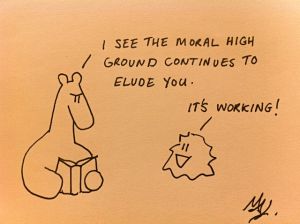 I SEE THE MORAL HIGH
GROUND CONTINUES TO
ELUDE YOU.
IT'S WORKING!